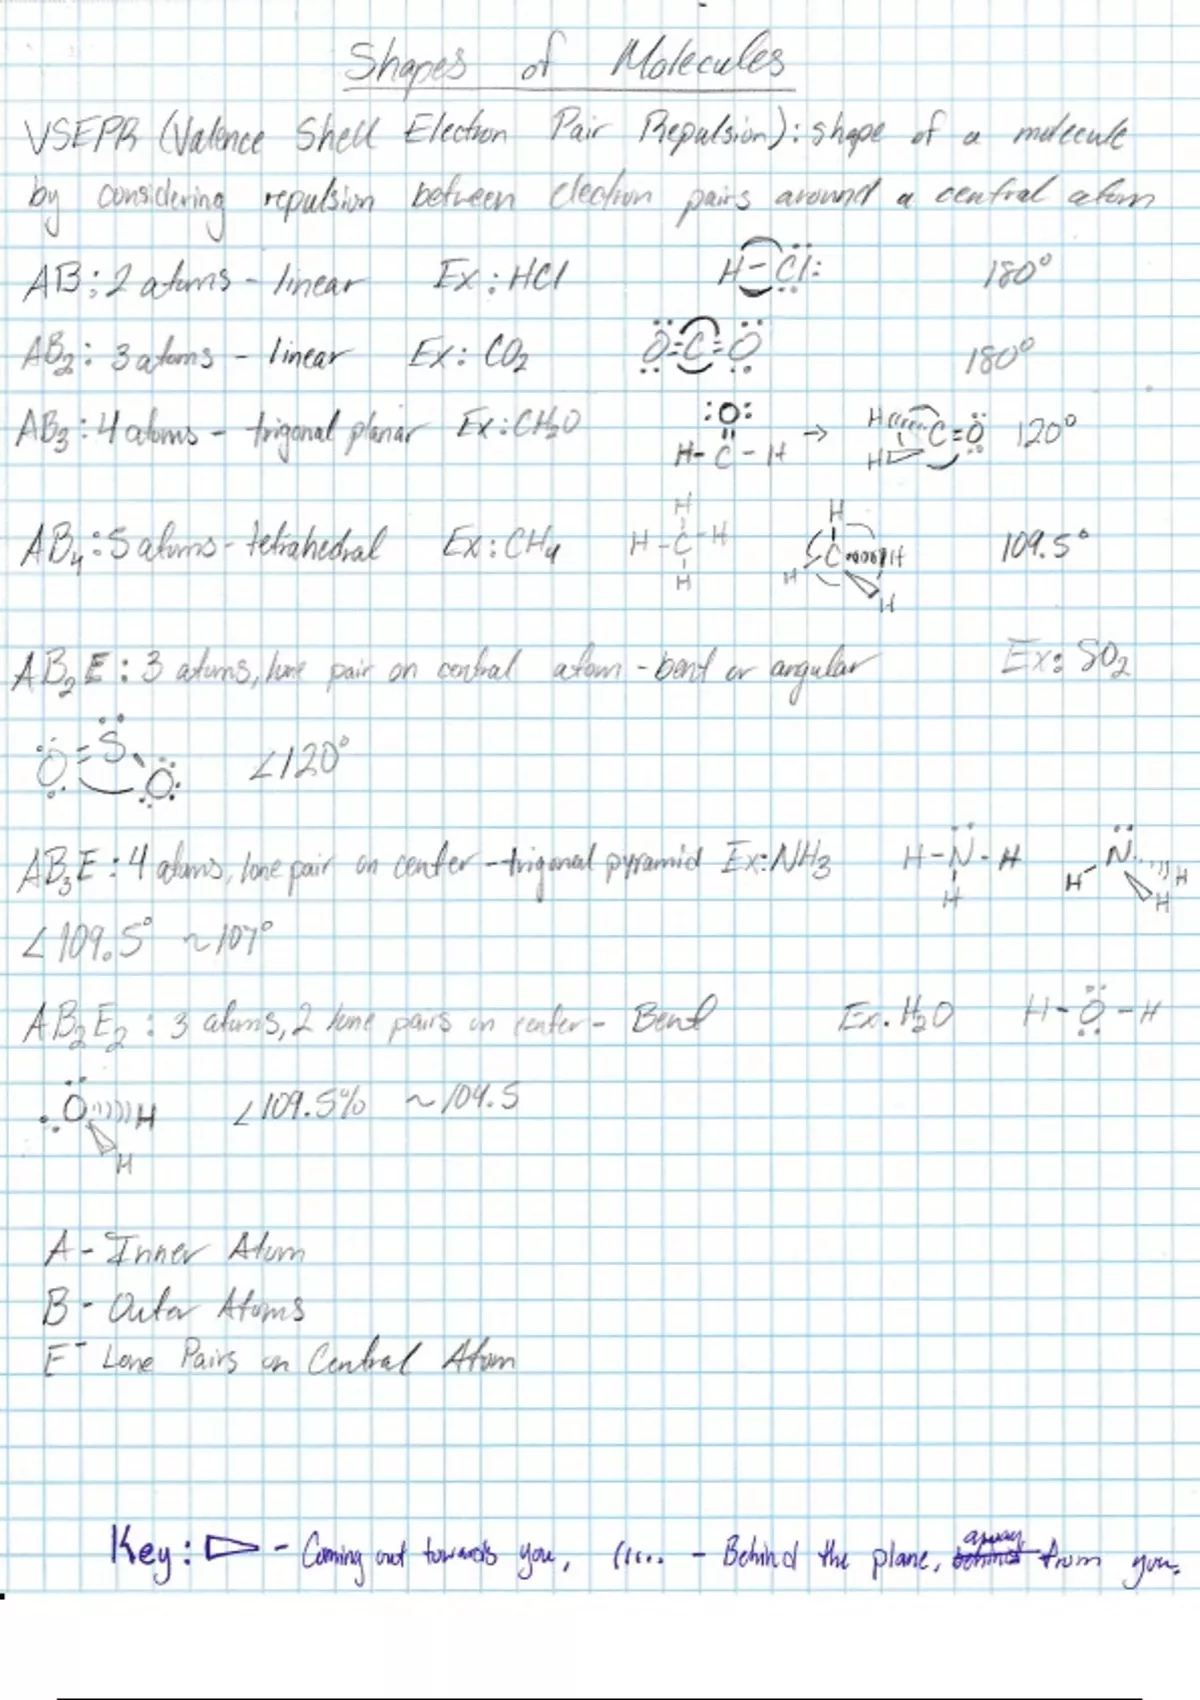 Shapes of Molecules
VSEPR (Valence Shell Electron Pair Repulsion): shape of a molecule
by considering repulsion between electron pairs around a central atom
AB: 2 atoms - linear Ex: HCl H-Cl: 180°
AB₂: 3 atoms - linear Ex: CO₂ O=C=O 180°
AB₃: 4 atoms - trigonal planar Ex: CH₂O :O: H-C-H → H H C=O 120°
AB₄: 5 atoms - tetrahedral Ex: CH₄ H H-C-H H H C H H H 109.5°
AB₂E: 3 atoms, lone pair on central atom - bent or angular Ex: SO₂
O=S-O <120°
AB₃E: 4 atoms, lone pair on center - trigonal pyramid Ex: NH₃ H-N-H H H N H H
<109.5° ~107°
AB₂E₂: 3 atoms, 2 lone pairs on center - Bent Ex. H₂O H-O-H
O H H <109.5% ~104.5
A - Inner Atom
B - Outer Atoms
E - Lone Pairs on Central Atom
Key: ▷ - Coming out towards you, (ıı... - Behind the plane, away from you.